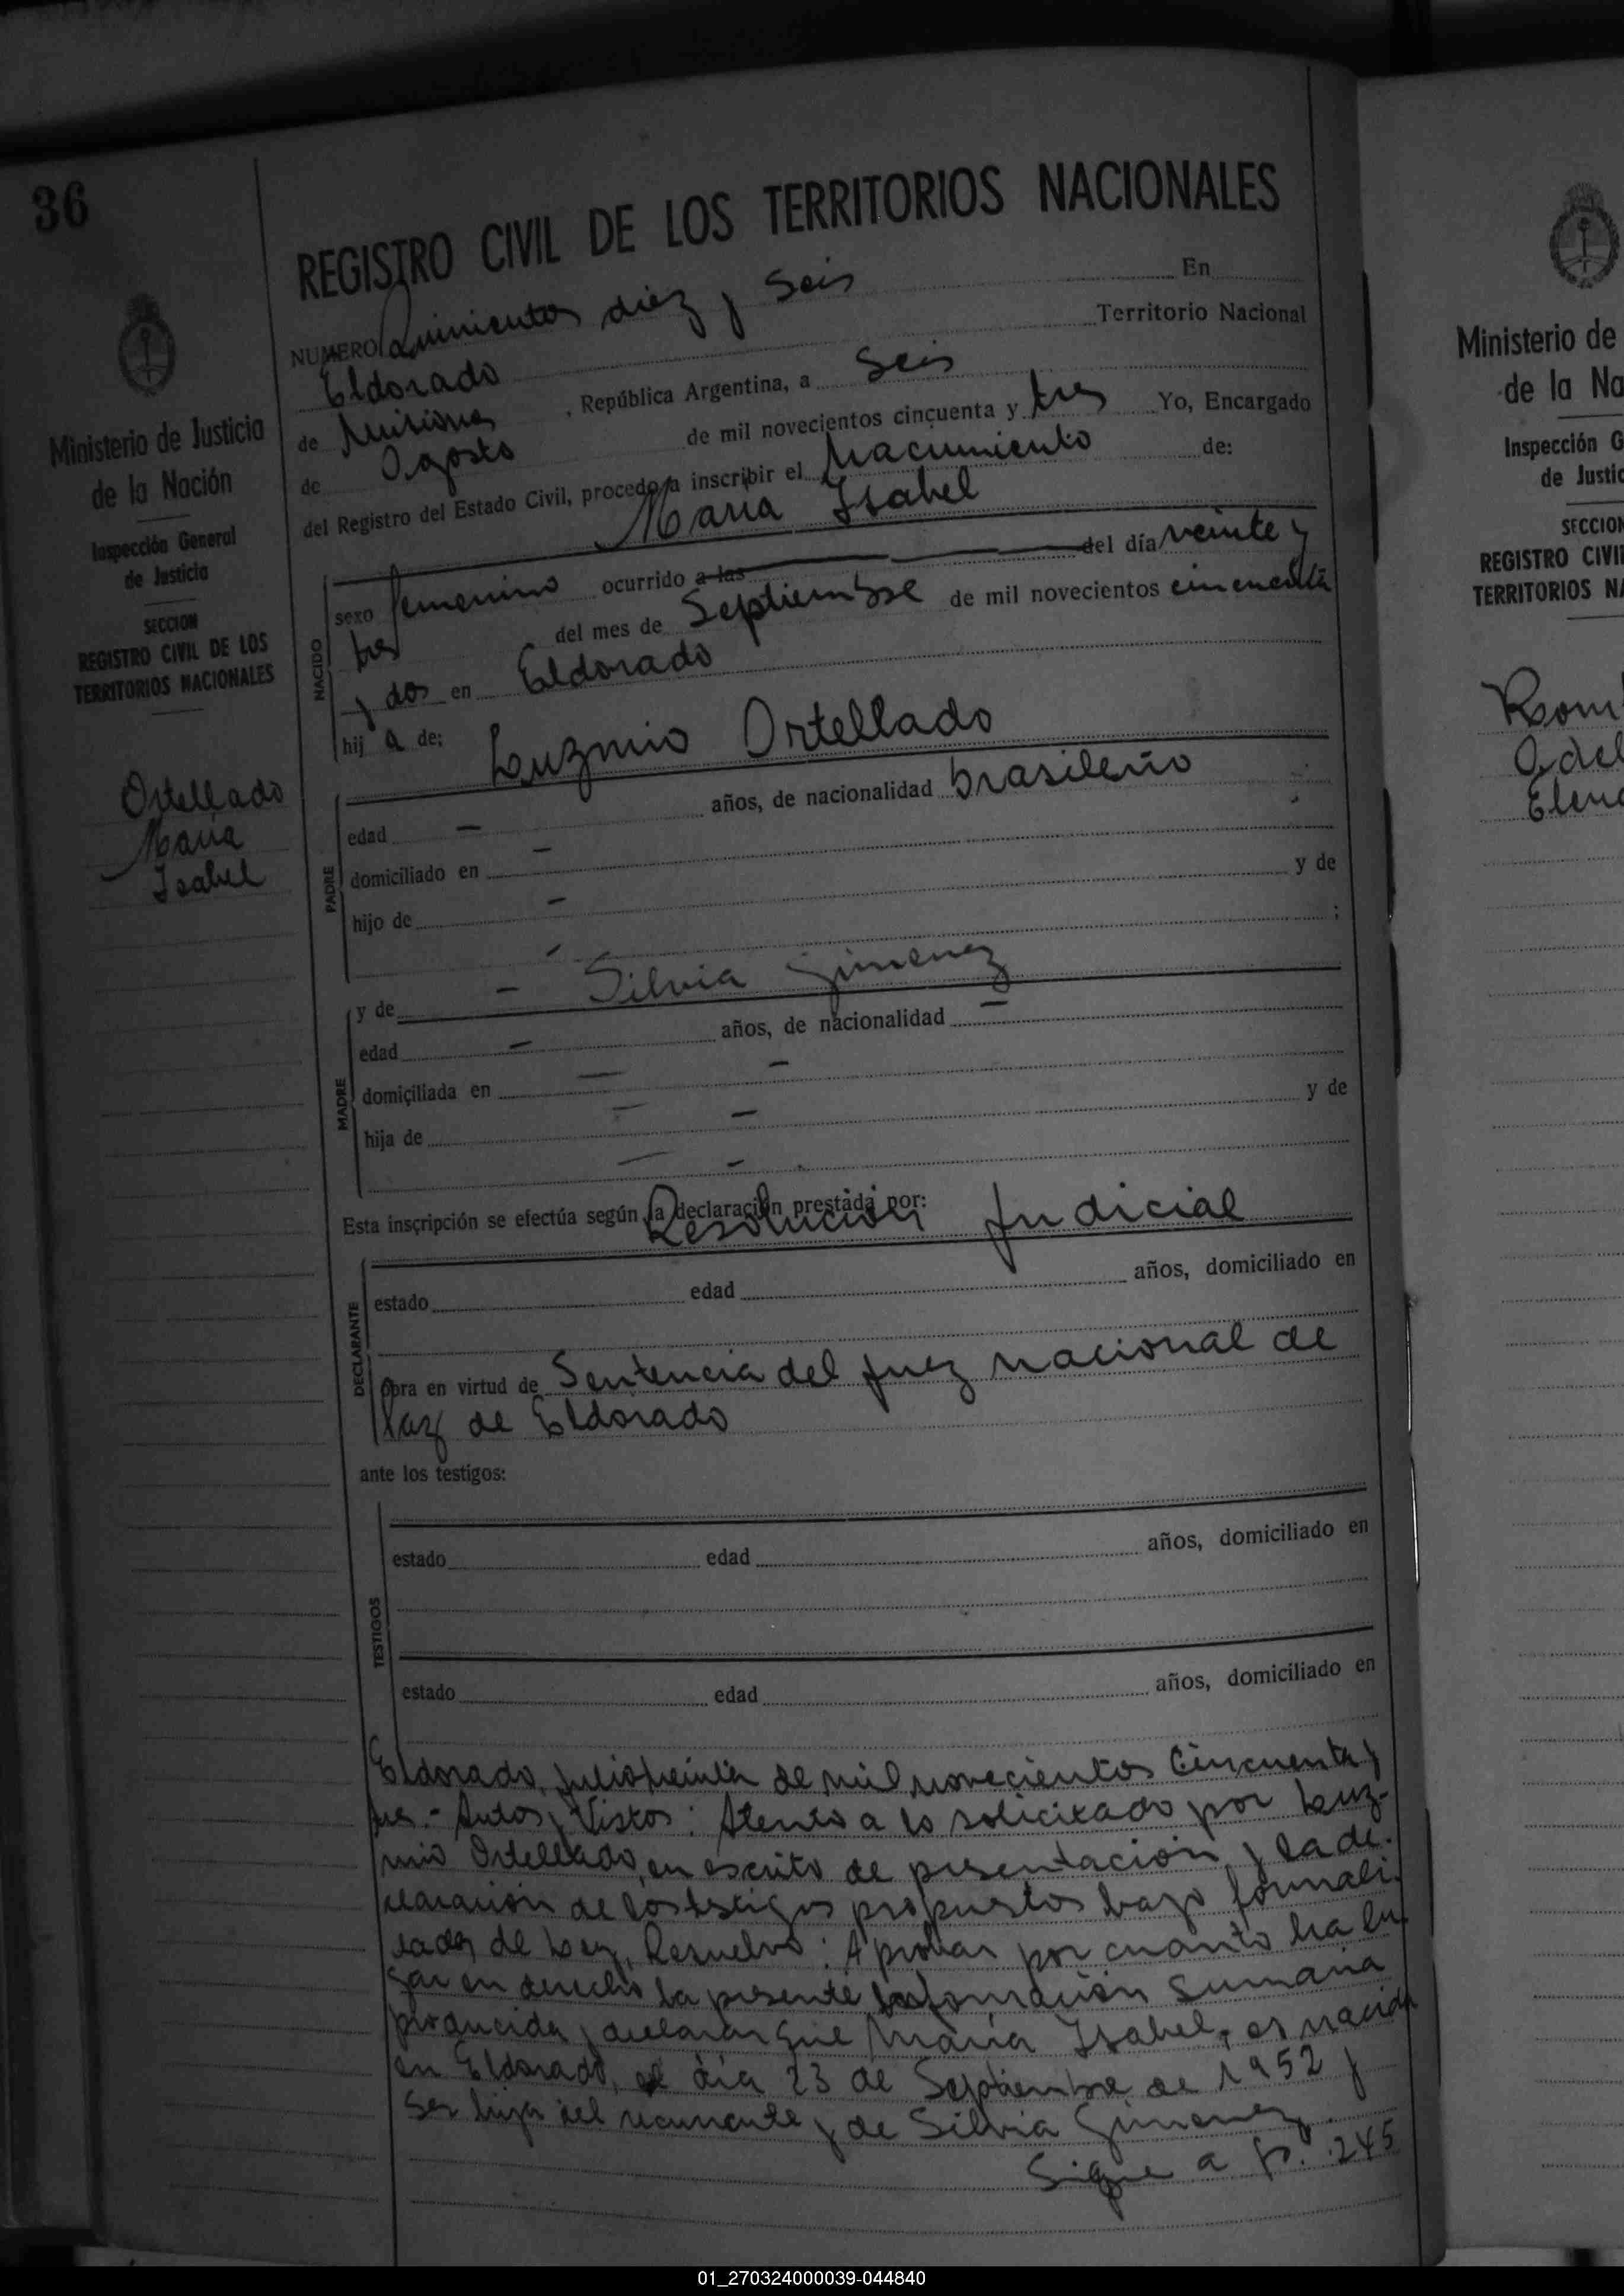 36
Ministerio de Justicia
de la Nación
Inspección General
de Justicia
SECCION
REGISTRO CIVIL DE LOS
TERRITORIOS NACIONALES
Ortellado
Maria
Isabel
REGISTRO CIVIL DE LOS TERRITORIOS NACIONALES
NUMERO Quinientos diez y Seis En
Eldorado Territorio Nacional
de Misiones, República Argentina, a Seis
de Agosto de mil novecientos cincuenta y tres Yo, Encargado
del Registro del Estado Civil, procedo a inscribir el Nacimiento de:
Maria Isabel
NACIDO
sexo femenino ocurrido a las del día veinte y
tres del mes de Septiembre de mil novecientos cincuenta
y dos en Eldorado
hij a de:
Luzmio Ortellado
PADRE
edad — años, de nacionalidad brasileño
domiciliado en —
hijo de — y de
— ;
MADRE
y de — Silvia Gimenez
edad — años, de nacionalidad —
domiciliada en — —
hija de — — y de
— —
Esta inscripción se efectúa según la declaración prestada por:
Resolución Judicial
DECLARANTE
estado edad años, domiciliado en
obra en virtud de Sentencia del Juez nacional de
Paz de Eldorado
ante los testigos:
TESTIGOS
estado edad años, domiciliado en
estado edad años, domiciliado en
Eldorado, Julio de mil novecientos Cincuenta y
tres.- Autos y Vistos: Atento a lo solicitado por Luz-
mio Ortellado, en escrito de presentación y la de-
claración de los testigos propuestos bajo formali-
dades de Ley, Resuelvo: Aprobar por cuanto ha lu-
gar en derecho la presente Información Sumaria
producida y declarar que Maria Isabel, es nacida
en Eldorado, el día 23 de Septiembre de 1952 y
Ser hija del recurrente y de Silvia Gimenez.
Sigue a fs. 245
Ministerio de
de la Na
Inspección G
de Justic
SECCION
REGISTRO CIVI
TERRITORIOS NA
Adel
Elena
01_270324000039-044840